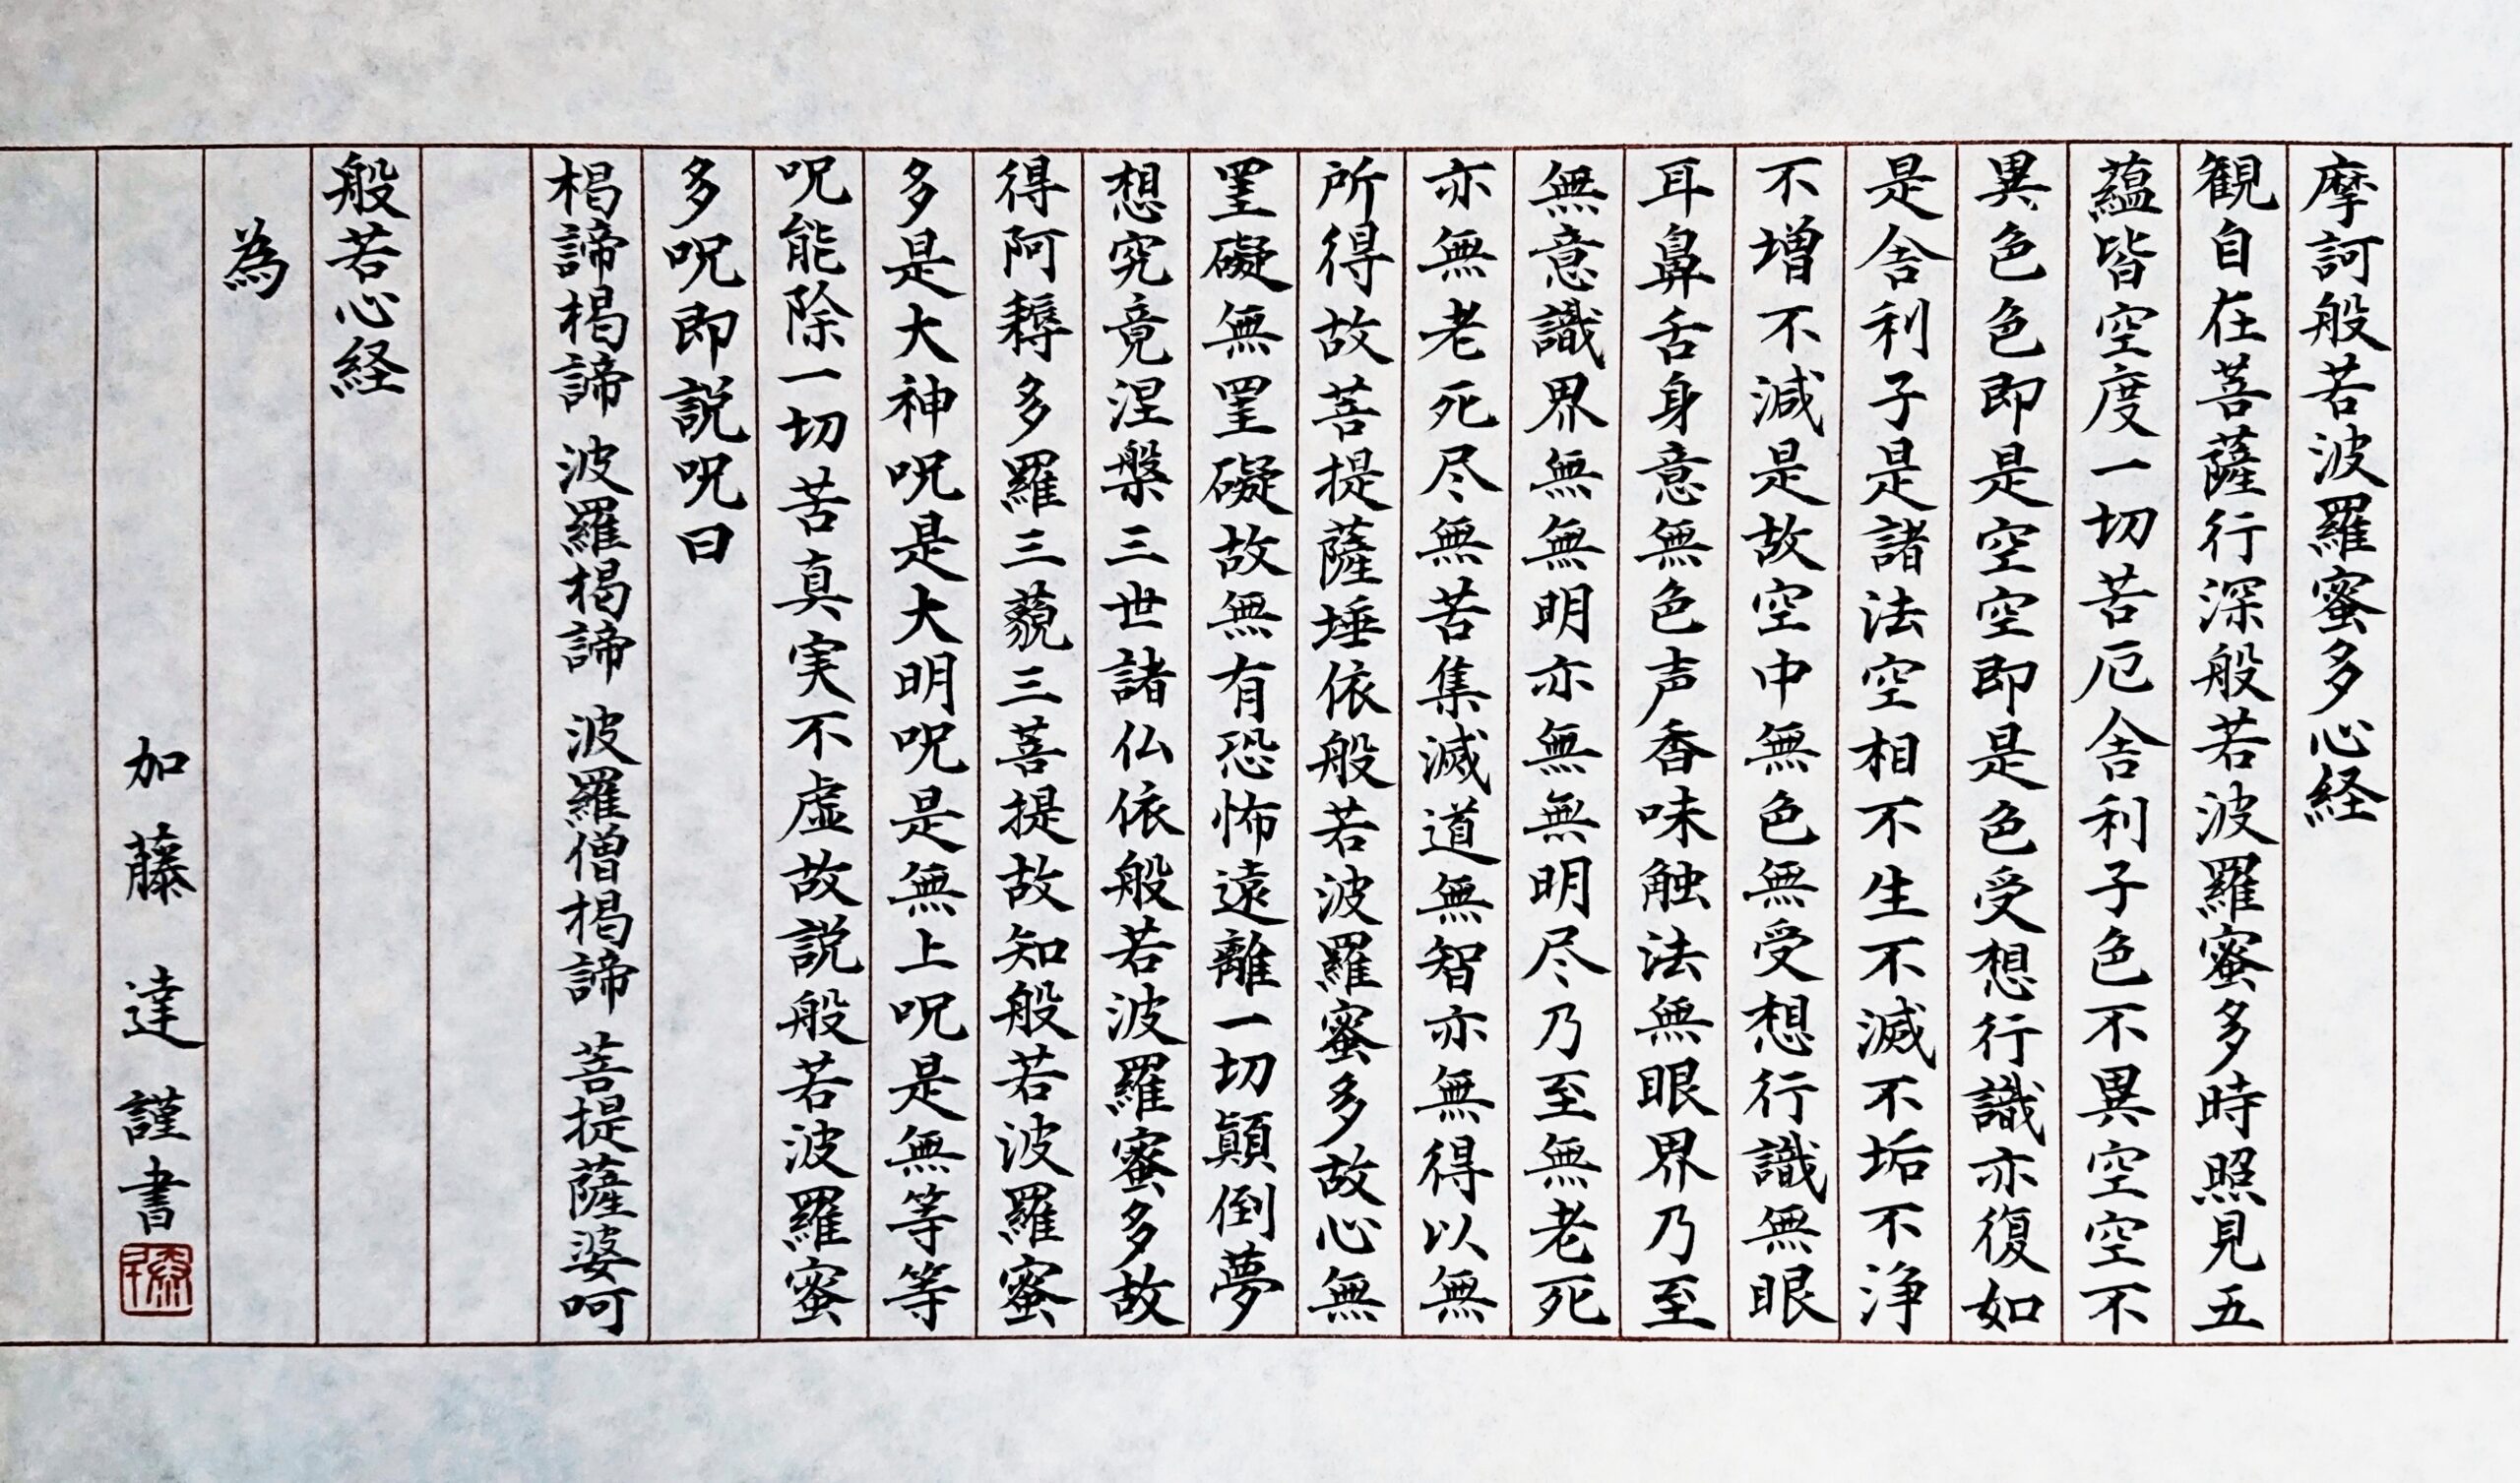 摩訶般若波羅蜜多心経
観自在菩薩行深般若波羅蜜多時照見五
蘊皆空度一切苦厄舎利子色不異空空不
異色色即是空空即是色受想行識亦復如
是舎利子是諸法空相不生不滅不垢不浄
不増不減是故空中無色無受想行識無眼
耳鼻舌身意無色声香味触法無眼界乃至
無意識界無無明亦無無明尽乃至無老死
亦無老死尽無苦集滅道無智亦無得以無
所得故菩提薩埵依般若波羅蜜多故心無
罣礙無罣礙故無有恐怖遠離一切顛倒夢
想究竟涅槃三世諸仏依般若波羅蜜多故
得阿耨多羅三藐三菩提故知般若波羅蜜
多是大神呪是大明呪是無上呪是無等等
呪能除一切苦真実不虚故説般若波羅蜜
多呪即説呪曰
楬諦楬諦 波羅楬諦 波羅僧楬諦 菩提薩婆呵
般若心経
為
加藤 達 謹書